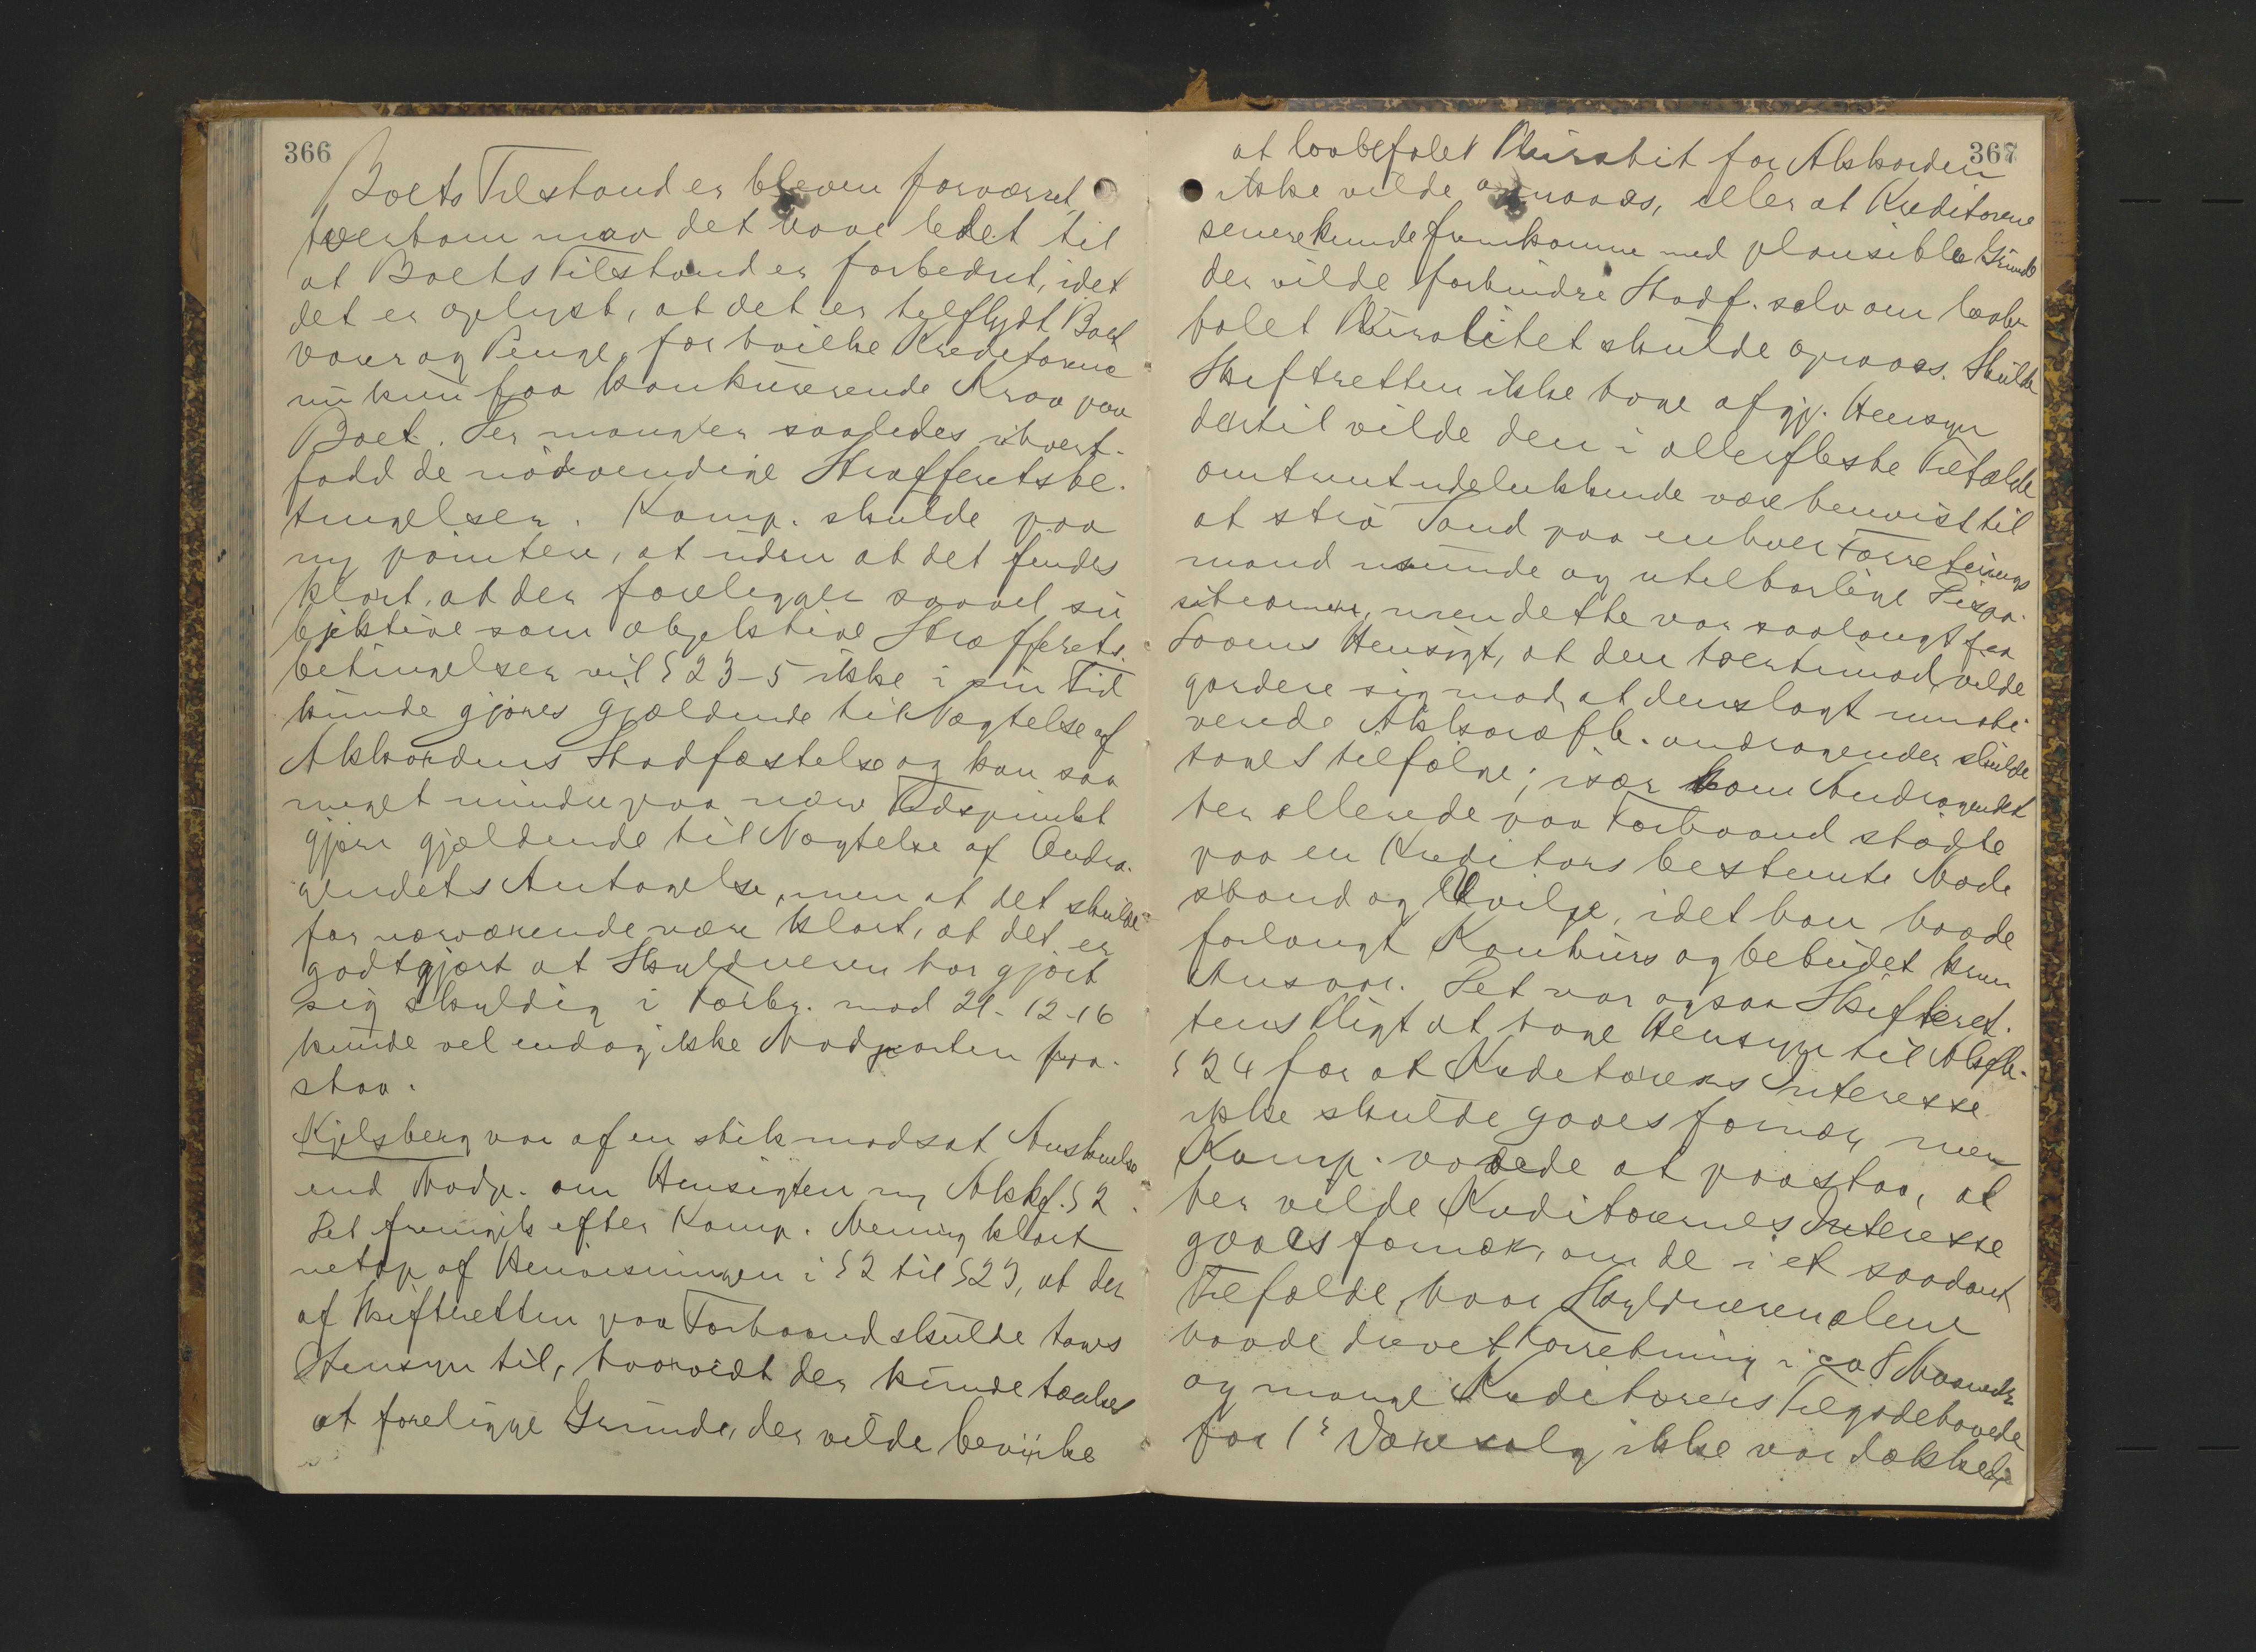 366
Boets Tilstand er bleven forværret,
tvertom maa det have ledet til
at Boets Tilstand er forbedret, idet
det er oplyst, at det er tilflydt Boet
varer og Penge, for hvilke Kreditorene
nu kun faa konkurerende Krav paa
Boet. Der mangler saaledes ihvert-
fald de nödvendige Strafferetsbe-
tingelser. Komp. skulde paa
ny pointere, at uden at det findes
klart, at der foreligger saavel su
bjektive som objektive Strafferets-
betingelser vil § 23-5 ikke i sin Tid
kunde gjøres gjældende til Nægtelse af
Akkordens Stadfæstelse og kan saa
meget mindre paa nærv Tidspunkt
gjøres gjældende til Nægtelse af Andra-
gendets Antagelse, men at det skulde
for nærværende være klart, at det er
godtgjort at Skyldneren har gjort
sig skyldig i Forbr. mod 21-12-16
kunde vel endog ikke Modparten paa-
staa.
Kjelsberg var af en stik modsat Anskuelse
end Modp. om Hensigten m Akkf. § 2.
Det fremgik efter Komp. Mening klart
netop af Henvisningen i § 2 til § 23, at der
af Skifteretten paa Forhaand skulde tages
Hensyn til, hvorvidt der kunde tænkes
at foreligge Grunde, der vilde bevirke
367
at lovbefalet Pluralitet for Akkorden
ikke vilde opnaaes, eller at Kreditorene
senere kunde fremkomme med plausible Grunde
der vilde forhindre Stadf. selv om lovbe
falet Pluralitet skulde opnaaes. Skulde
Skifteretten ikke have afgj. Hensyn
dertil vilde den i allerfleste Tilfælde
omtrent udelukkende være henvist til
at strö Sand paa enhver Forretnings
mand usunde og utilbørlige Dispo-
sitioner, men dette var saalangt fra
Lovens Hensigt, at den tvertimod vilde
gardere sig mod, at denslagt umoti-
verede Akkordfh. andragender skulde
tages tilfølge; især som Andragendet
her allerede paa Forhaand stödte
paa en Kreditors bestemte Mod-
stand og Uvilje, idet han havde
forlangt Konkurs og bebudet krim
Ansvar. Det var ogsaa Skifteret-
tens Pligt at tage Hensyn til Akkfh.
§ 24 for at Kreditorenes Interesse
ikke skulde gaaes fornær, men
Komp. vovede at paastaa, at
her vilde Kreditorernes Interesse
gaaes fornær, om de i et saadant
Tilfælde, hvor Skyldneren alene
havde drevet Forretning i ca 8 Maaneder
og mange Kreditorers Tilgodehavende
for 1s Varesalg ikke var dækket